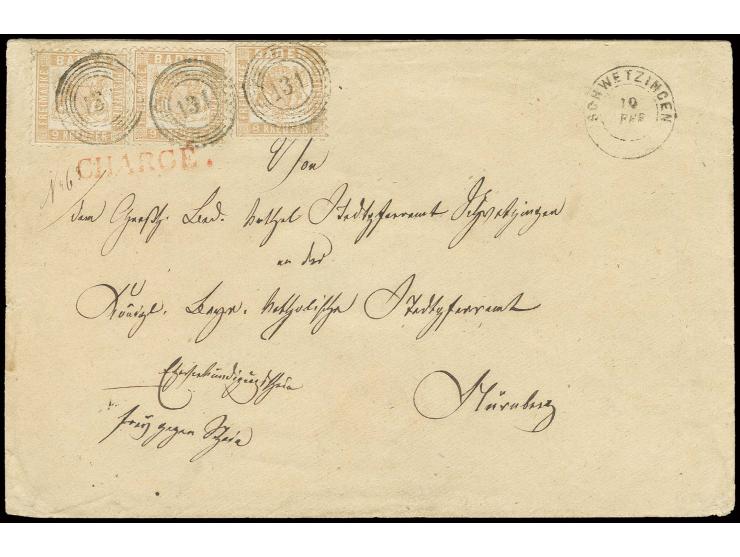 BADEN BADEN BADEN
FREIMARKE
131 131 131
9 KREUZER 9 KREUZER 9 KREUZER
SCHWETZINGEN
10
FEB
CHARGÉ.
No 6
Von
dem Großh. Bad. kathol. Stadtpfarramt Schwetzingen
an das
Königl. Bayr. katholische Stadtpfarramt
Eheverkündigungsschein
Nürnberg
frey gegen Schein